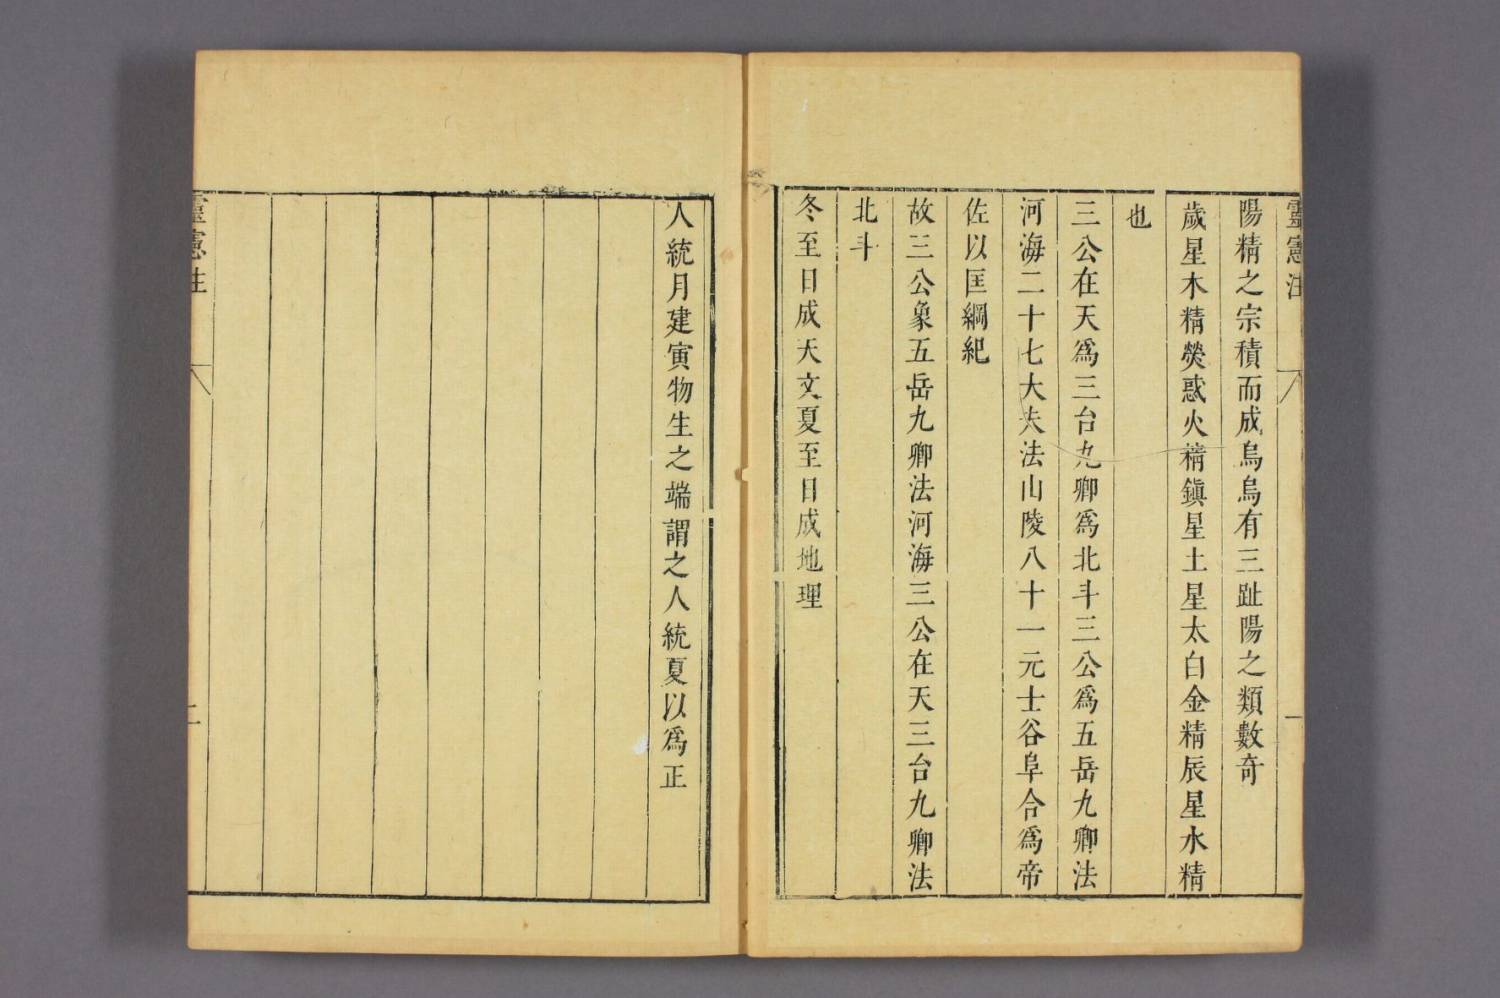 靈憲注
陽精之宗積而成烏烏有三趾陽之類數奇
歲星木精熒惑火精鎮星土星太白金精辰星水精
也
三公在天爲三台九卿爲北斗三公爲五岳九卿法
河海二十七大夫法山陵八十一元士谷阜合爲帝
佐以匡綱紀
故三公象五岳九卿法河海三公在天三台九卿法
北斗
冬至日成天文夏至日成地理
人統月建寅物生之端謂之人統夏以爲正
靈憲注